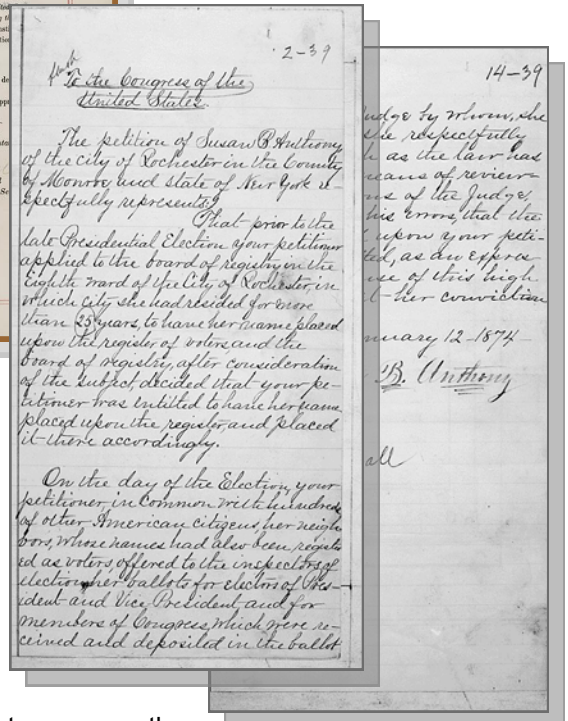 2-39
flush
To the Congress of the
United States.
The petition of Susan B Anthony
of the city of Rochester in the County
of Monroe, and state of New York re-
spectfully represents:
That prior to the
late Presidential Election your petitioner
applied to the board of registry in the
Eighth ward of the City of Rochester, in
which city she had resided for more
than 25 years, to have her name placed
upon the register of voters and the
board of registry, after consideration
of the subject, decided that your pe-
titioner was entitled to have her name
placed upon the register, and placed
it there accordingly.
On the day of the Election, your
petitioner, in common with hundreds
of other American citizens, her neigh
bors, whose names had also been registe
ed as voters, offered to the inspectors of
election, her ballots for electors of Pres-
ident and Vice President, and for
members of Congress, which were re-
ceived and deposited in the ballot
14-39
udge by whom, she
she respectfully
h as the law has
eans of review-
ns of the Judge,
his errors, that the
upon your peti-
ted, as an expres
se of this high
t her conviction
nuary 12-1874-
B. Anthony
all